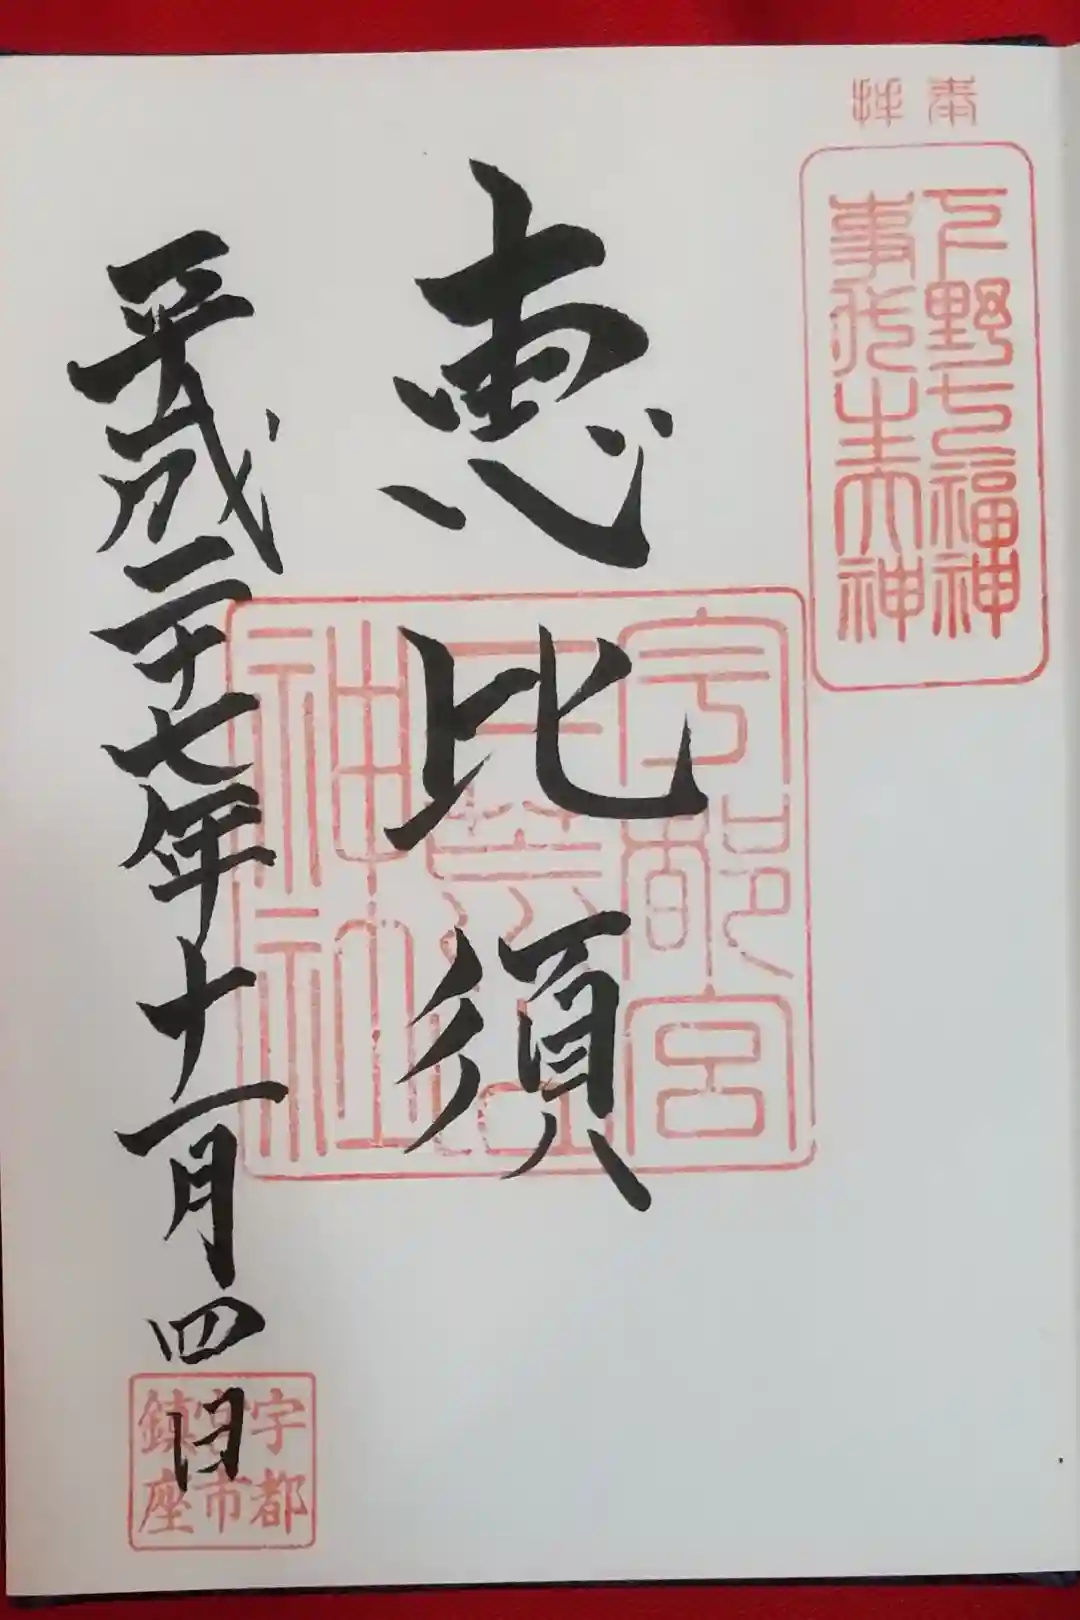 奉拝
下野七福神
事代主大神
恵比須
宇都宮
二荒山
神社
平成二十七年十一月四日
宇都
宮市
鎮座